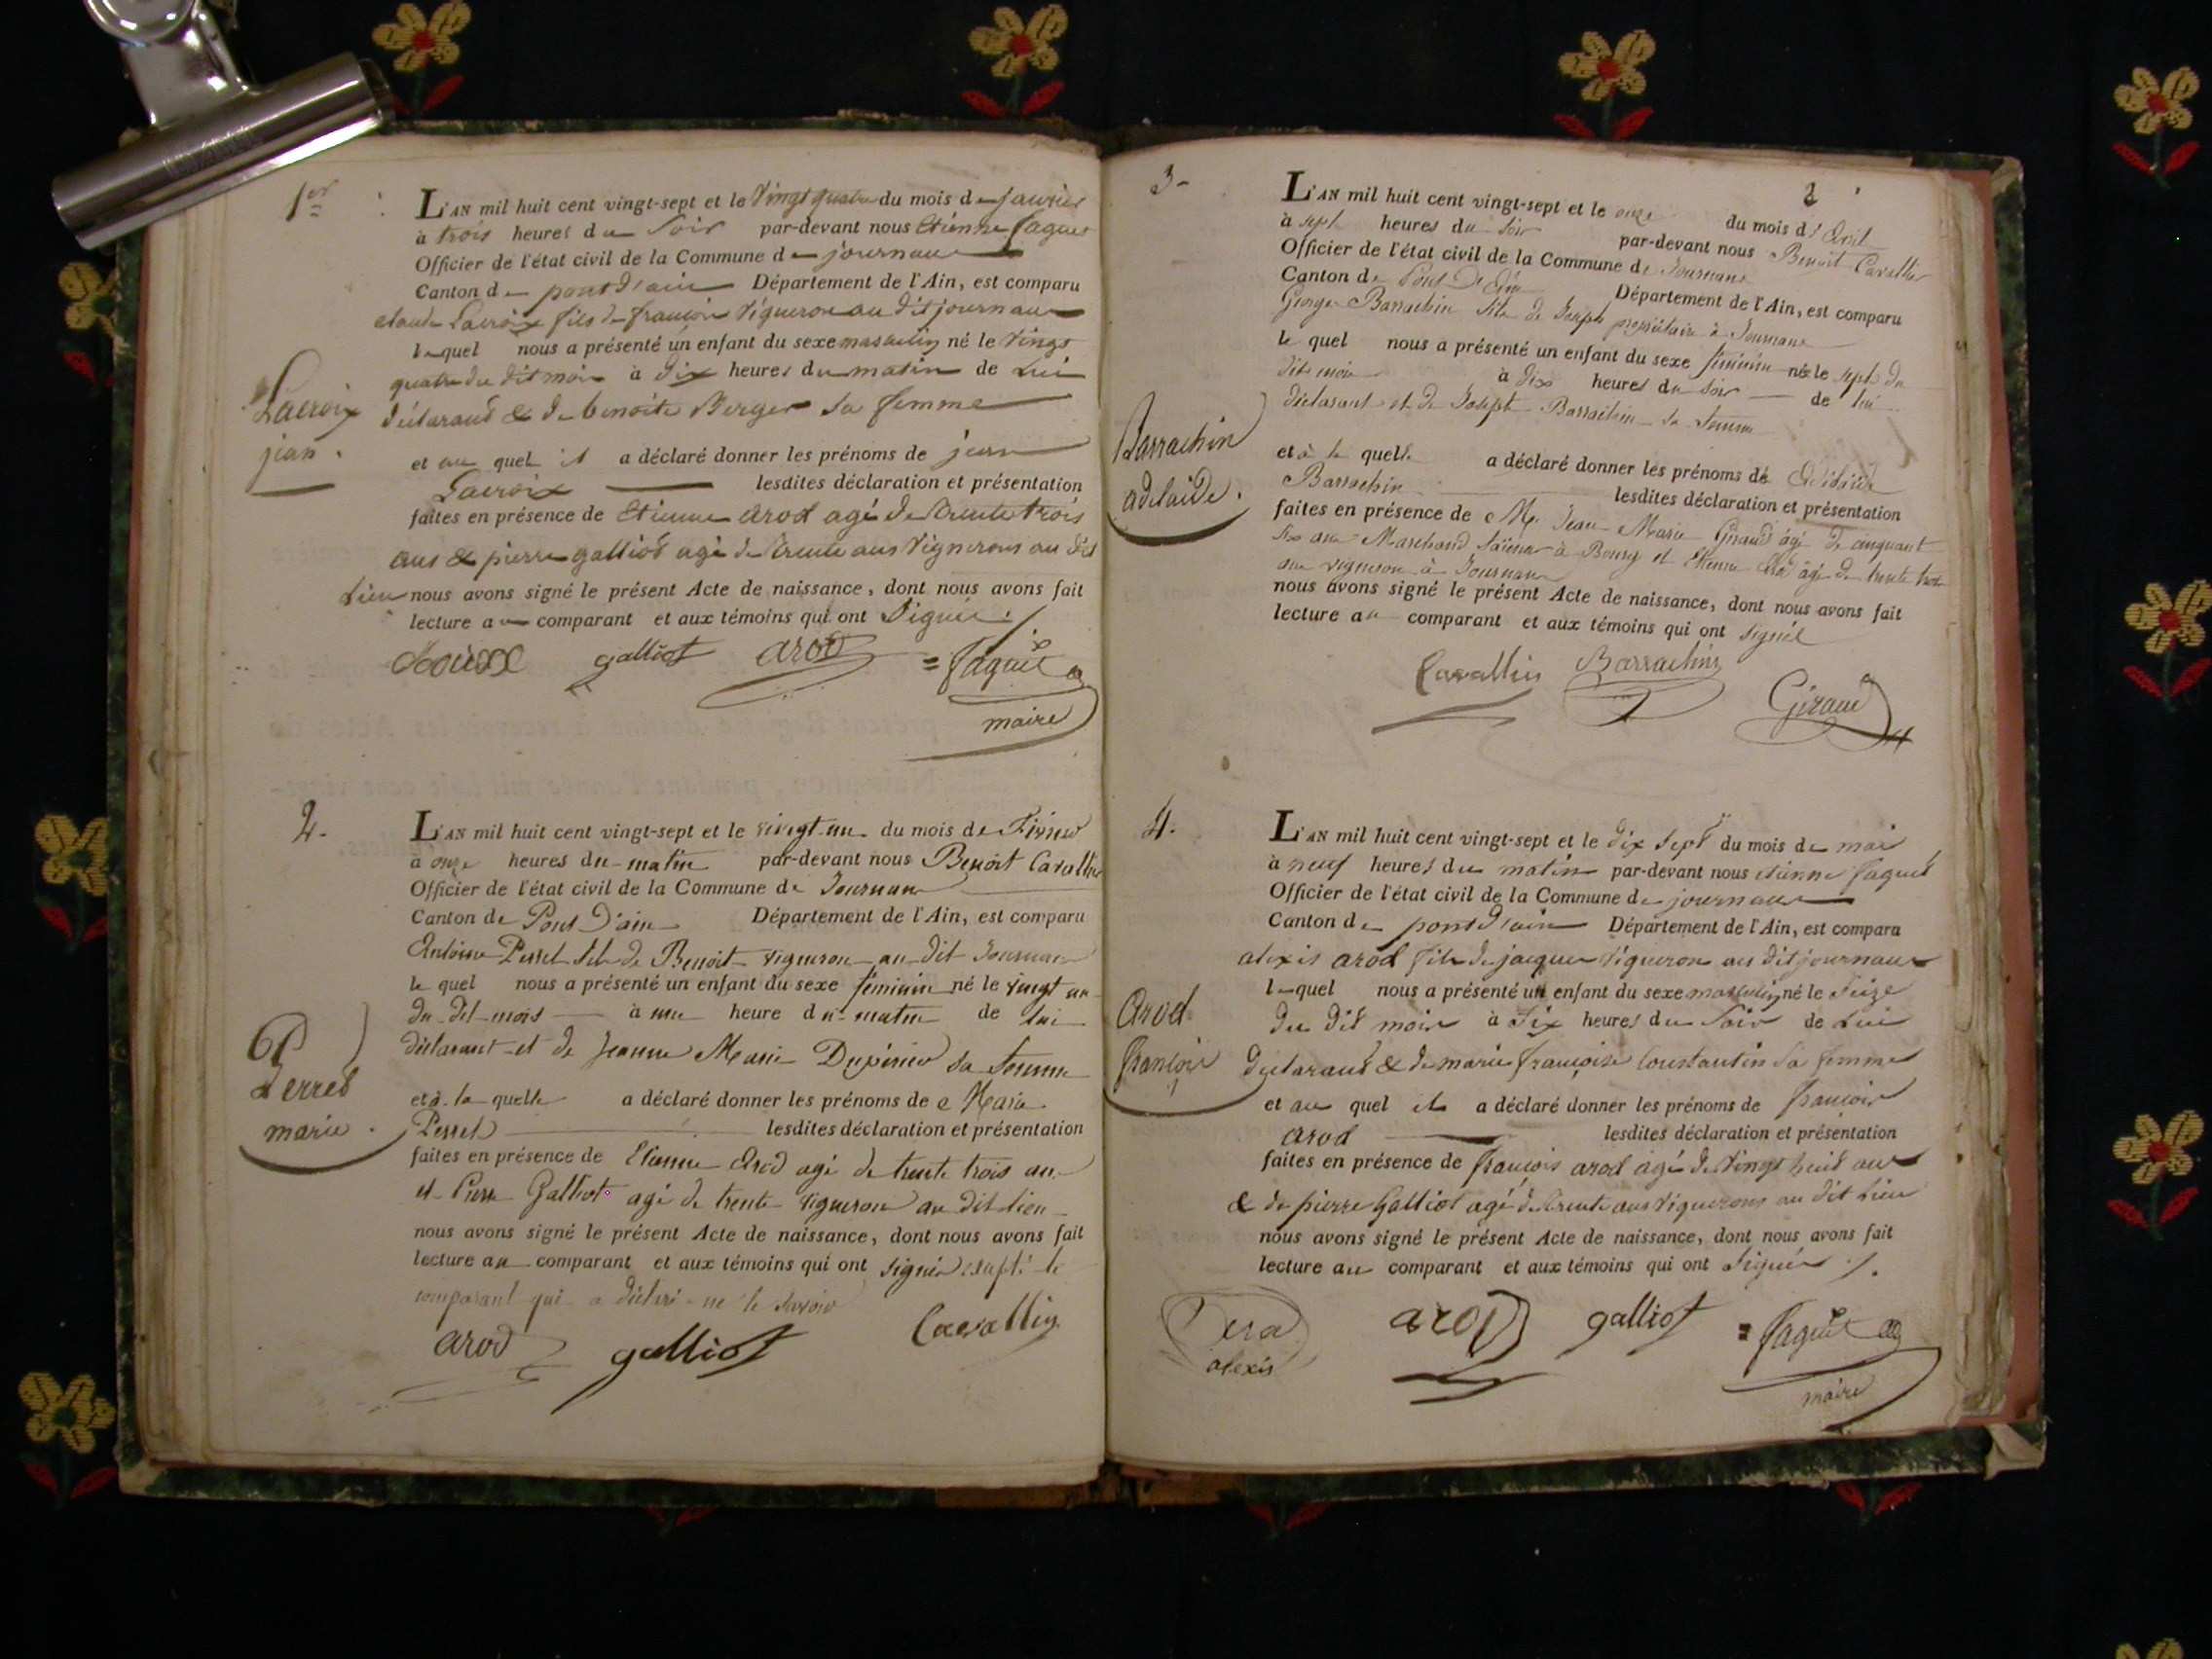 1er
L'AN mil huit cent vingt-sept et le vingt quatre du mois de janvier
à trois heures du soir par-devant nous Etienne faguet
Officier de l'état civil de la Commune de journaux
Canton de pont d'ain Département de l'Ain, est comparu
claude Lacroix fils de françois vigneron au dit journaux
lequel nous a présenté un enfant du sexe masculin né le vingt
quatre du dit mois à dix heures du matin de Lui
déclarant & de benoite Berger sa femme
Lacroix
jean.
et au quel il a déclaré donner les prénoms de jean
Lacroix lesdites déclaration et présentation
faites en présence de Etienne arod agé de trente trois
ans & pierre galliot agé de trente ans vignerons au dit
Lieu nous avons signé le présent Acte de naissance, dont nous avons fait
lecture au comparant et aux témoins qui ont signés.
galliot arod = faguet
maire
2.
L'AN mil huit cent vingt-sept et le vingt-un du mois de Février
à onze heures du matin par-devant nous Benoit Cavallin
Officier de l'état civil de la Commune de Journans
Canton de Pont D'ain Département de l'Ain, est comparu
Antoine Perret fils de Benoit vigneron au dit Journans
le quel nous a présenté un enfant du sexe féminin né le vingt un
du dit mois à une heure du matin de lui
déclarant et de Jeanne Marie Dupérier sa femme
Perret
marie.
et à la quelle a déclaré donner les prénoms de Marie
Perret lesdites déclaration et présentation
faites en présence de Etienne Arod agé de trente trois ans
et Pierre Galliot agé de trente vignerons au dit lieu
nous avons signé le présent Acte de naissance, dont nous avons fait
lecture au comparant et aux témoins qui ont signés excepté le
comparant qui a déclaré ne le savoir
arod galliot Cavallin
3-
2
L'AN mil huit cent vingt-sept et le onze du mois d'Avril
à sept heures du soir par-devant nous Benoit Cavallin
Officier de l'état civil de la Commune de Journans
Canton de Pont D'Ain Département de l'Ain, est comparu
George Barrachin fils de Joseph propriétaire à Journans
le quel nous a présenté un enfant du sexe féminin née le sept du
dit mois à dix heures du soir de lui
déclarant et de Joseph Barrachin sa femme
Barrachin
adelaide.
et à la quelle a déclaré donner les prénoms de Adélaïde
Barrachin lesdites déclaration et présentation
faites en présence de Mr. Jean Marie Giraud âgé de cinquant
six ans Marchand à Bourg et Etienne Arod âgé de trente trois
ans vigneron à Journans
nous avons signé le présent Acte de naissance, dont nous avons fait
lecture au comparant et aux témoins qui ont signés
Cavallin Barrachin
Giraud
4.
L'AN mil huit cent vingt-sept et le dix sept du mois de mai
à neuf heures du matin par-devant nous etienne faguet
Officier de l'état civil de la Commune de journaux
Canton de pont d'ain Département de l'Ain, est comparu
alexis arod fils de jacques vigneron au dit journaux
lequel nous a présenté un enfant du sexe masculin né le seize
du dit mois à six heures du soir de Lui
déclarant & de marie françoise Constantin sa femme
Arod
françois
et au quel il a déclaré donner les prénoms de françois
arod lesdites déclaration et présentation
faites en présence de françois arod agé de vingt huit ans
& de pierre Galliot agé de trente ans vignerons au dit Lieu
nous avons signé le présent Acte de naissance, dont nous avons fait
lecture au comparant et aux témoins qui ont signés
alexis arod galliot = faguet
maire